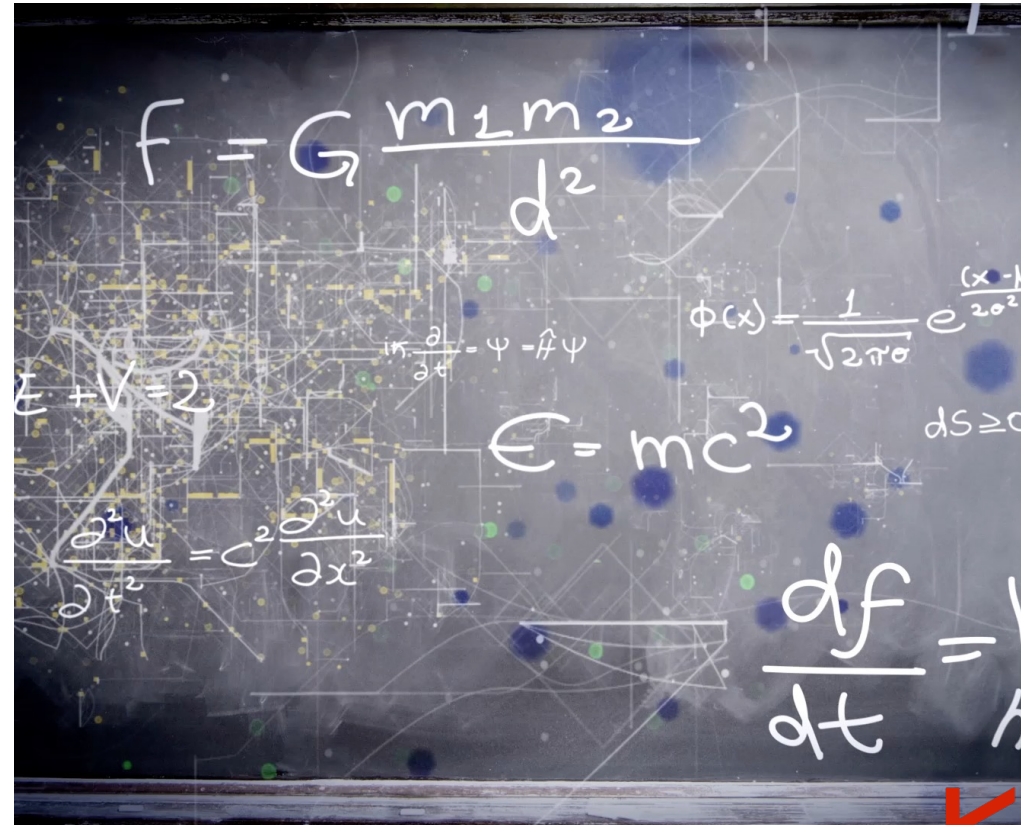 F = G m1m2 / d²
φ(x) = 1 / √2πσ e^(x-μ / 2σ²
iħ ∂/∂t = Ψ = Ĥ Ψ
E + V = 2
E = mc²
dS ≥ 0
∂²u / ∂t² = c² ∂²u / ∂x²
df / dt =